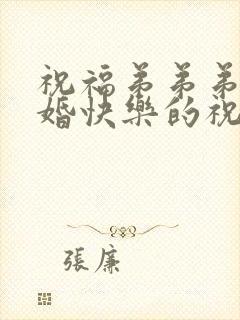 祝福弟弟弟
婚快樂的祝
張廉